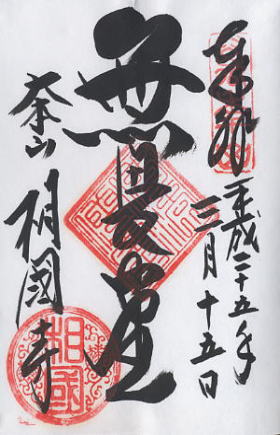 奉拝
平成二十五年
三月十五日
無畏堂
本山
相國寺
相國